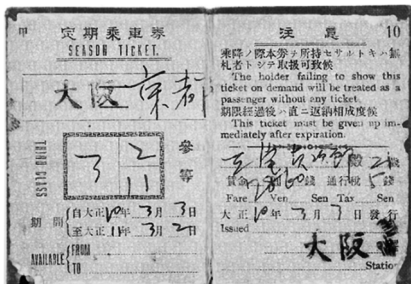 甲
定期乗車券
SEASON TICKET.
大阪 京都
THIRD CLASS
3 2
11
參等
期間
自大正10年3月3日
至大正11年3月2日
AVAILABLE
FROM
TO
注意 10
乗降ノ際本券ヲ所持セサルトキハ無
札者トシテ取扱可致候
The holder failing to show this
ticket on demand will be treated as a
passenger without any ticket.
期限經過後ハ直ニ返納相成度候
This ticket must be given up im-
mediately after expiration.
殿
賃金 錢 通行税 5 錢
Fare Yen Sen Tax Sen
大正10年3月3日發行
Issued
大阪
Station